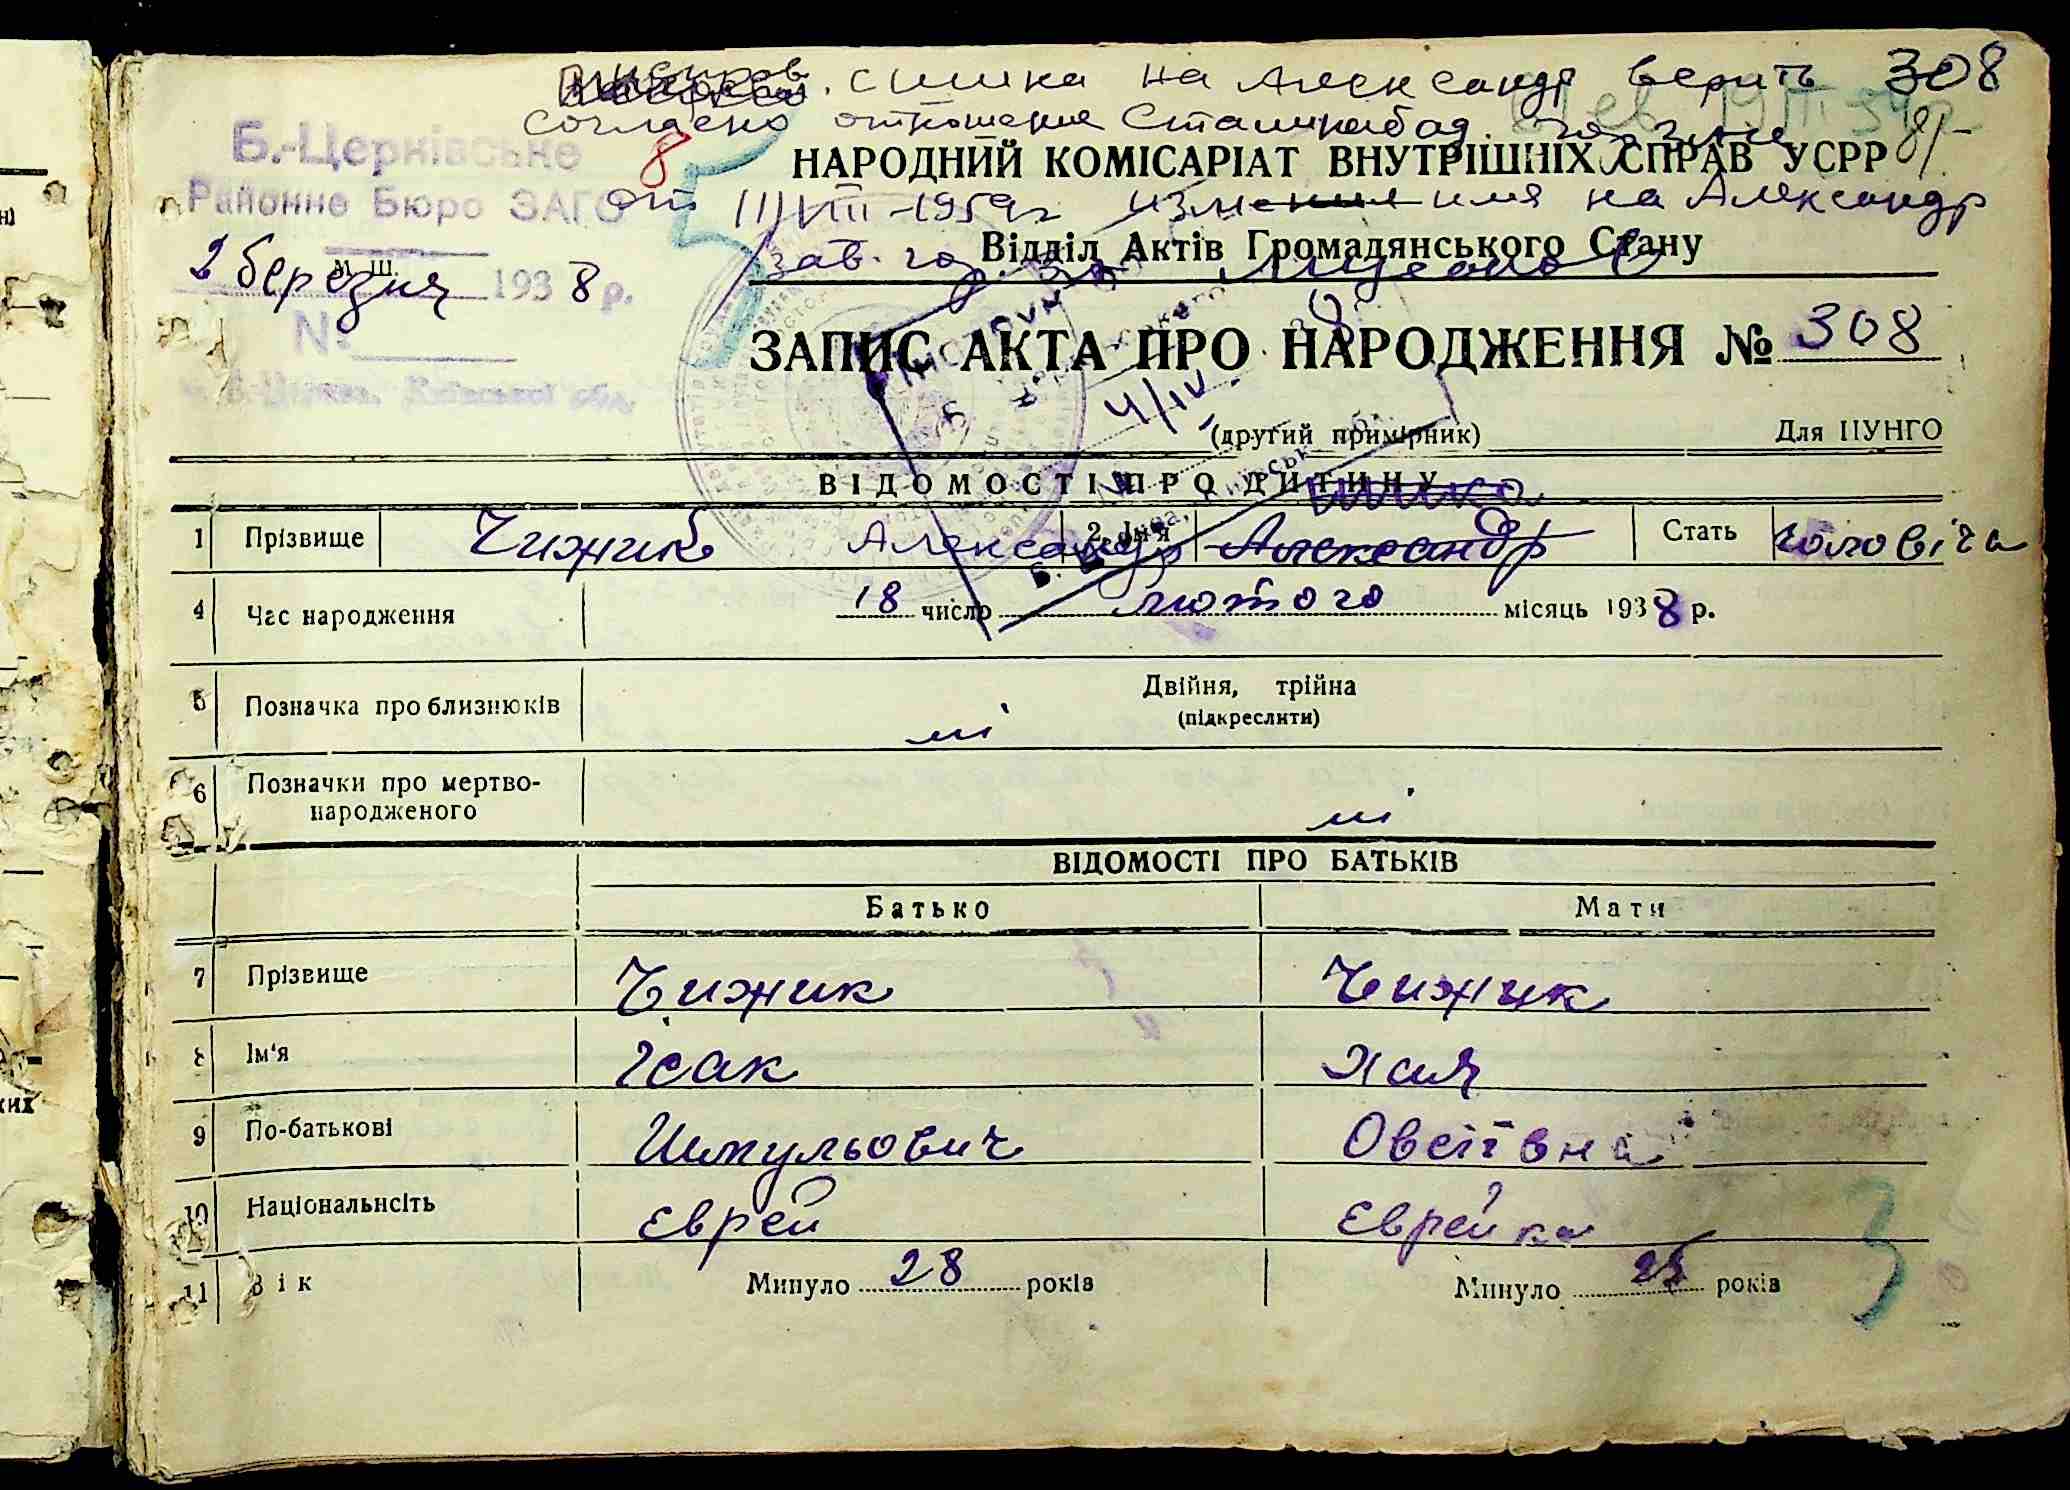 сишка на Александр верить 308
согласно отношения Сталинабад.
8
81-
Б.-Церківське
Районне Бюро ЗАГС
НАРОДНИЙ КОМІСАРІАТ ВНУТРІШНІХ СПРАВ УСРР
от 11/VIII-1959г имя на Александр
Відділ Актів Громадянського Стану
зав. гор.
м. Ш.
2 березня 1938 р.
№
м. Б-Церква, Київської обл.
ЗАПИС АКТА ПРО НАРОДЖЕННЯ № 308
4/IV
(другий примірник) Для ЦУНГО
ВІДОМОСТІ ПРО ДИТИНУ
1 Прізвище Чижик Александр 2. Ім'я Александр Стать чоловіча
4 Час народження 18 число лютого місяць 1938 р.
5 Позначка про близнюків Двійня, трійна
(підкреслити)
ні
6 Позначки про мертво-
народженого ні
ВІДОМОСТІ ПРО БАТЬКІВ
Батько Мати
7 Прізвище Чижик Чижик
8 Ім'я Ісак Хая
9 По-батькові Шмульович Овсіївна
10 Національність Єврей Єврейка
11 Вік Минуло 28 років Минуло 25 років
3